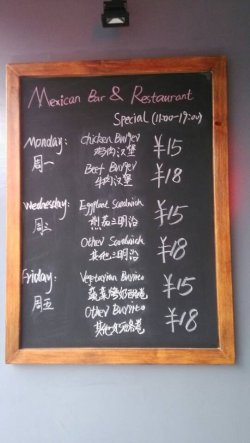 Mexican Bar & Restaurant
Special (11:00-19:00)
Monday: Chicken Burger ¥15
周一 鸡肉汉堡
Beef Burger ¥18
牛肉汉堡
Wednesday: Eggplant Sandwich ¥15
周三 煎茄三明治
Other Sandwich ¥18
其他三明治
Friday: Vegetarian Burrito ¥15
周五
Other Burrito ¥18
其他